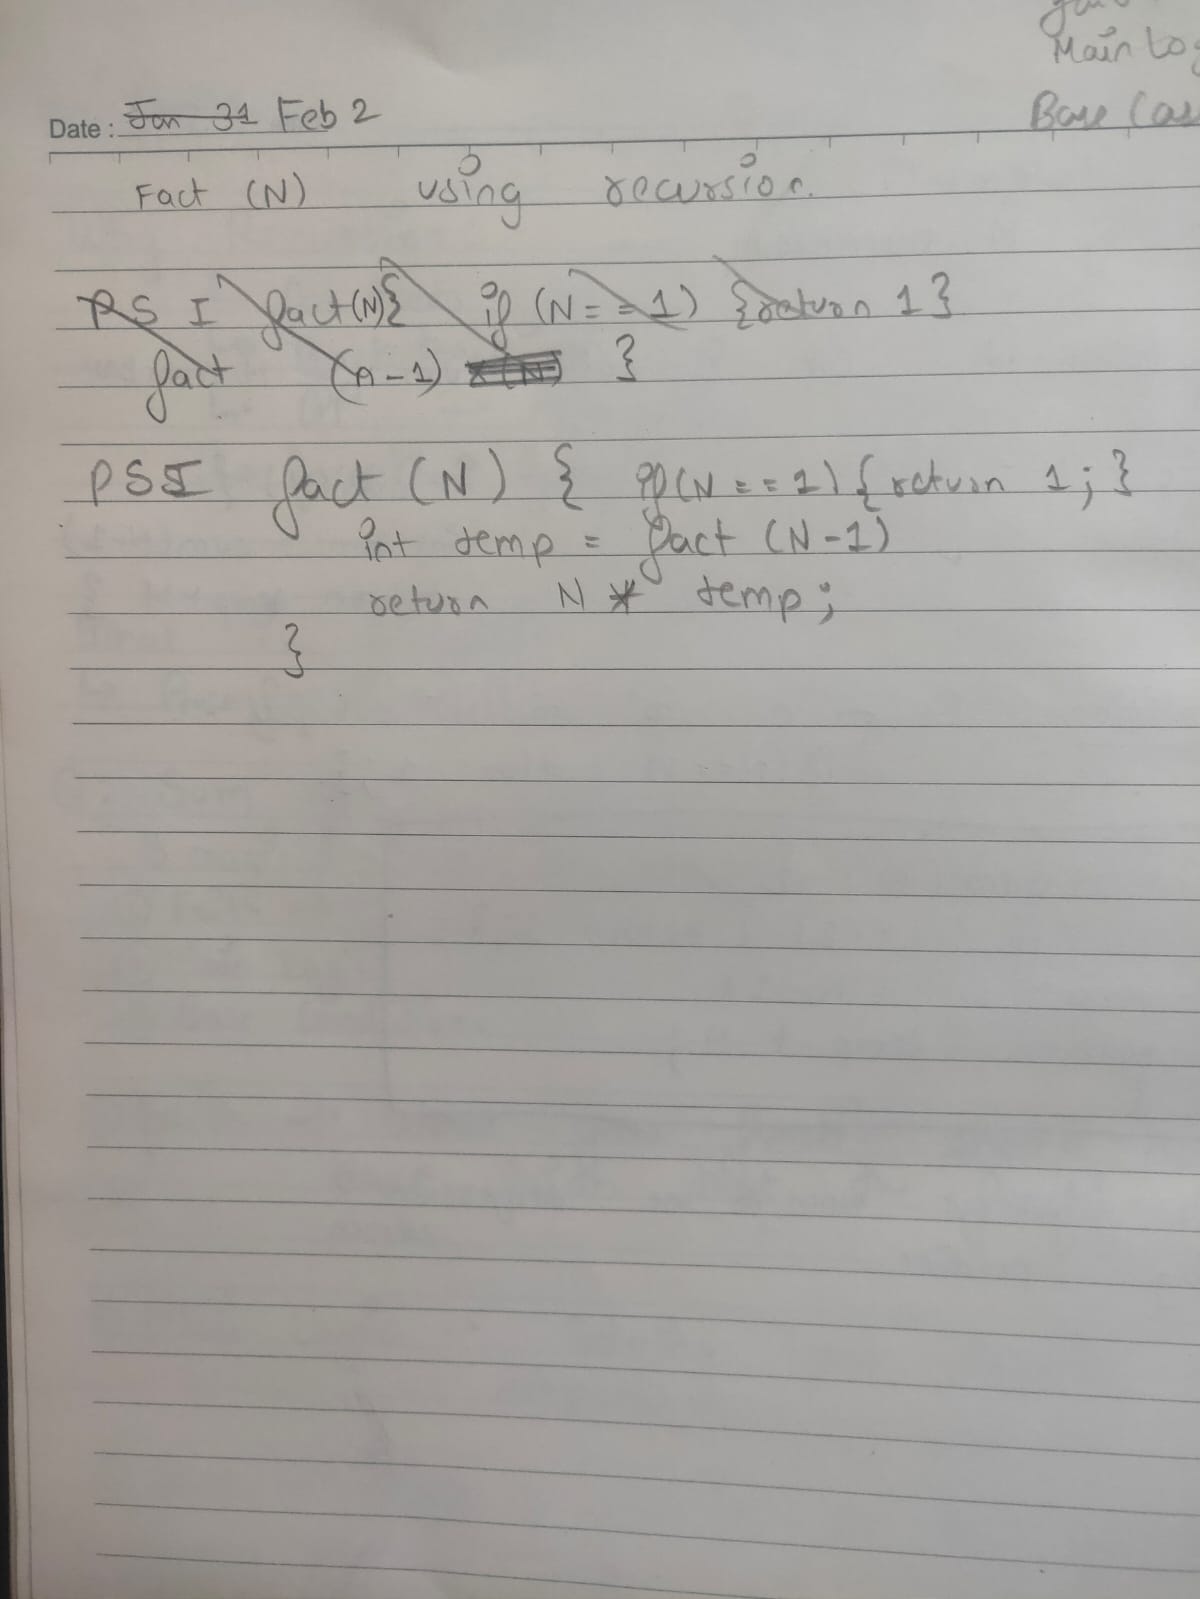 Main Lo
Base Cas
Date : Jan 31 Feb 2
Fact (N) using recursion.
PS I fact(N){ if (N==1) {return 1}
fact (n-1) }
PSI fact (N) { if(N==1) {return 1;}
int temp = fact (N-1)
return N * temp;
}